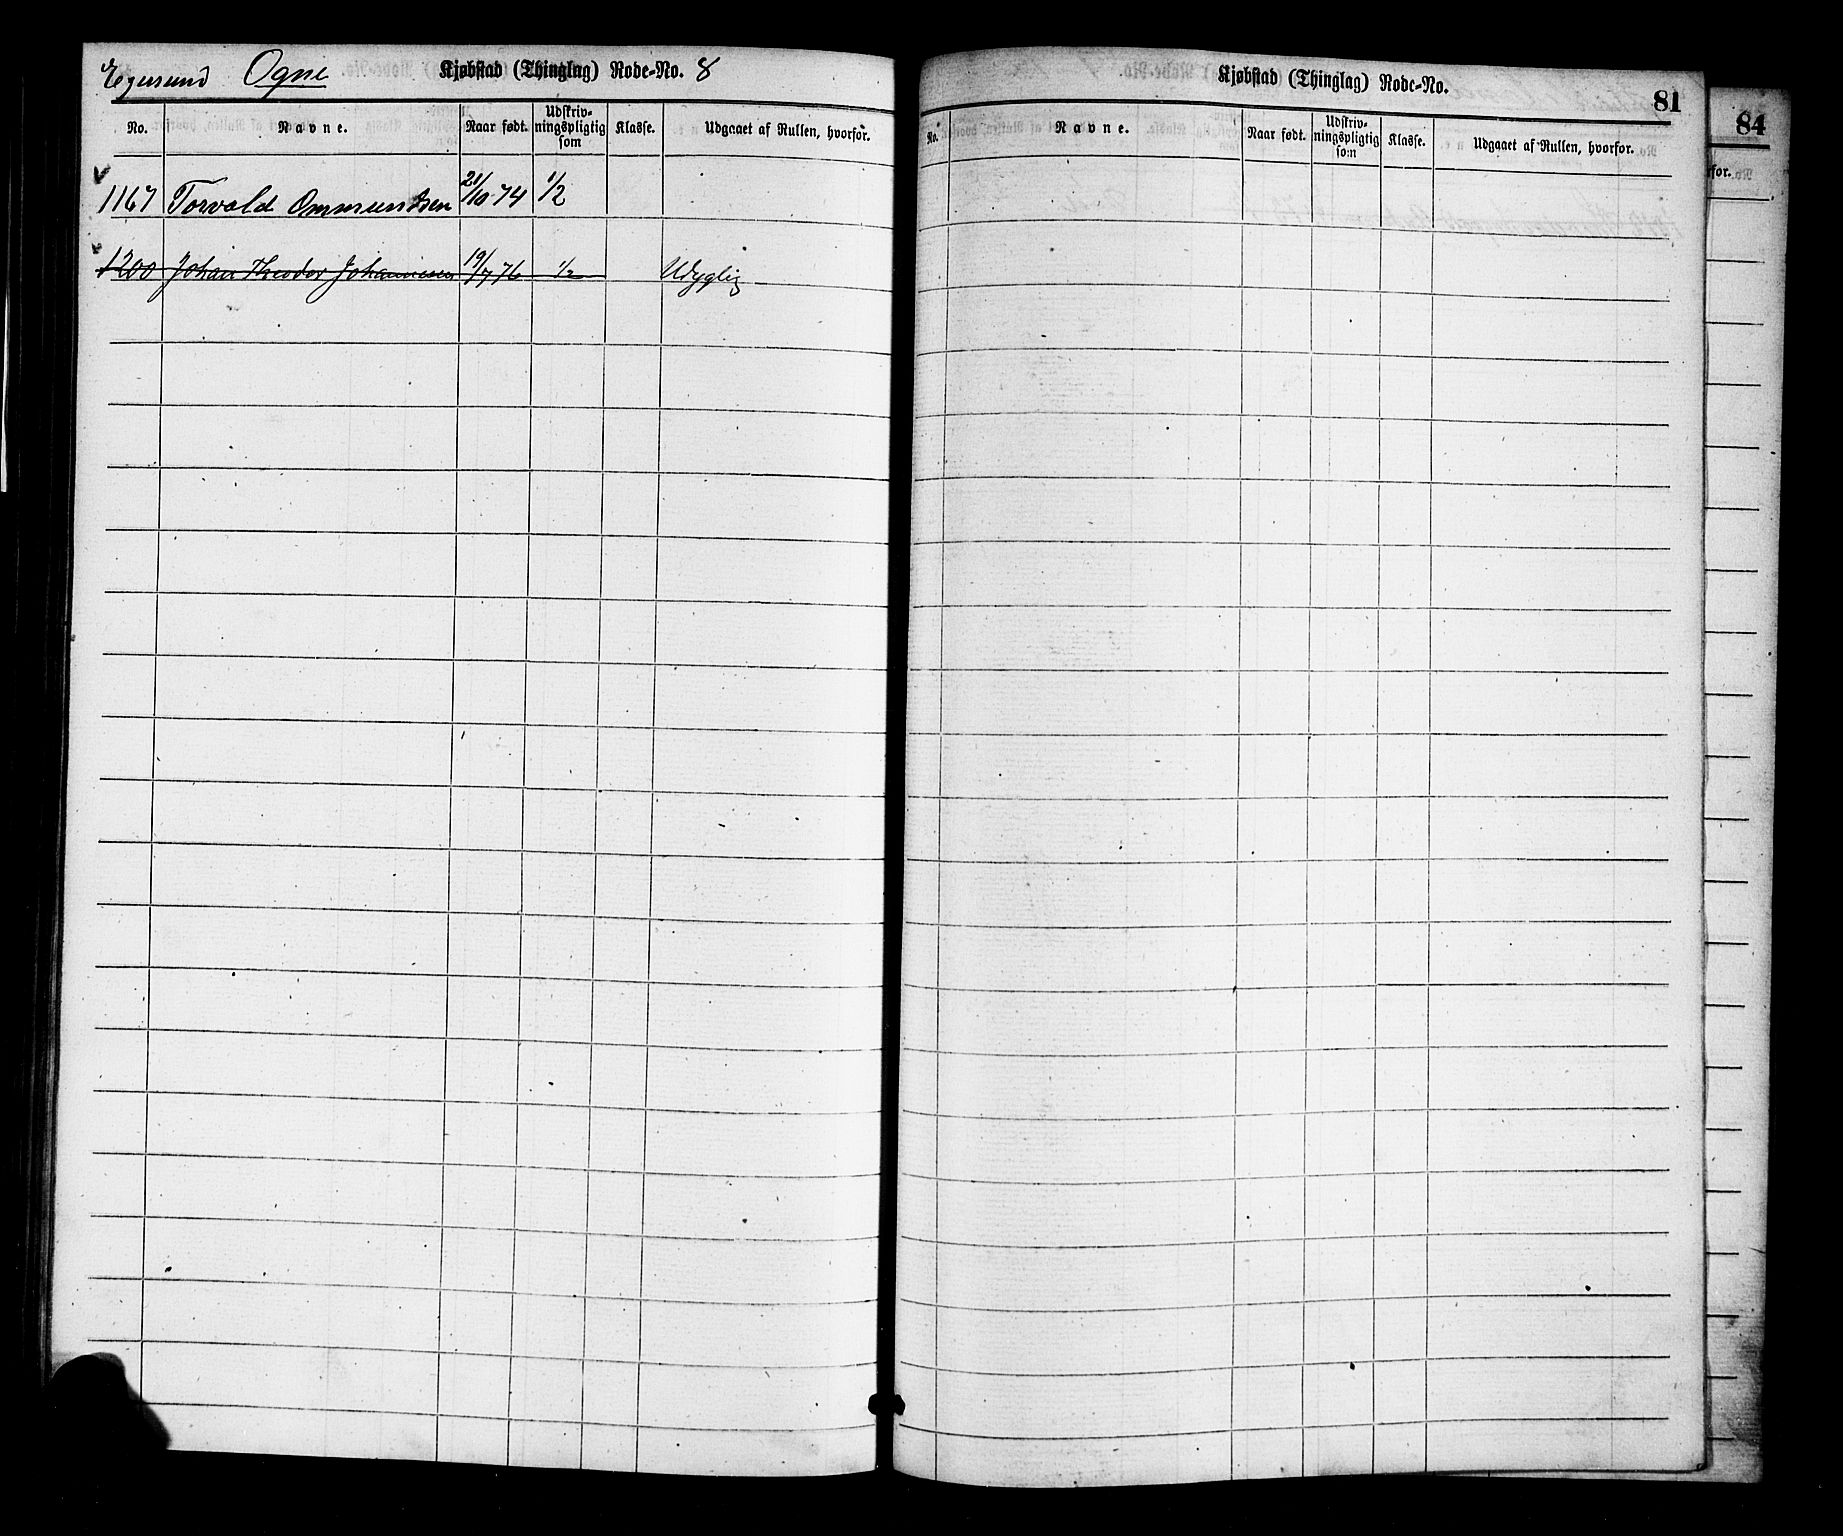 Egersund Ogne Kjøbstad (Thinglag) Rode-No. 8
No. Navne. Naar født. Udskriv-ningspligtig som Klasse. Udgaaet af Rullen, hvorfor.
1167 Torvald Ommundsen 21/10 74 1/2
1200 Johan Theodor Johannesen 19/7 76 1/2 Udyglig
Kjøbstad (Thinglag) Rode-No.
81
No. Navne. Naar født. Udskriv-ningspligtig som Klasse. Udgaaet af Rullen, hvorfor.
84
rfor.